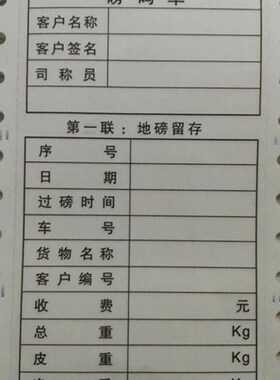 客户名称
客户签名
司称员
第一联：地磅留存
序号
日期
过磅时间
车号
货物名称
客户编号
收费 元
总重 Kg
皮重 Kg